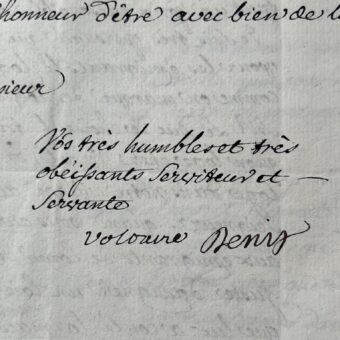 honneur d'être avec bien de la
sieur
Vos très humbles et très
obéissants serviteur et —
servante
voltaire Denis